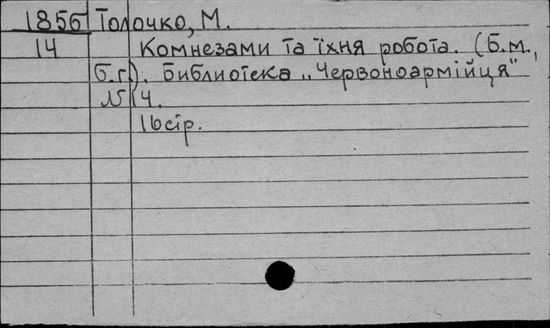 1856 Толочко, М.
14 Комнезами та їхня робота. (Б.м.,
б.г.). Библиотека „Червоноармійця"
№ 4.
16 стр.